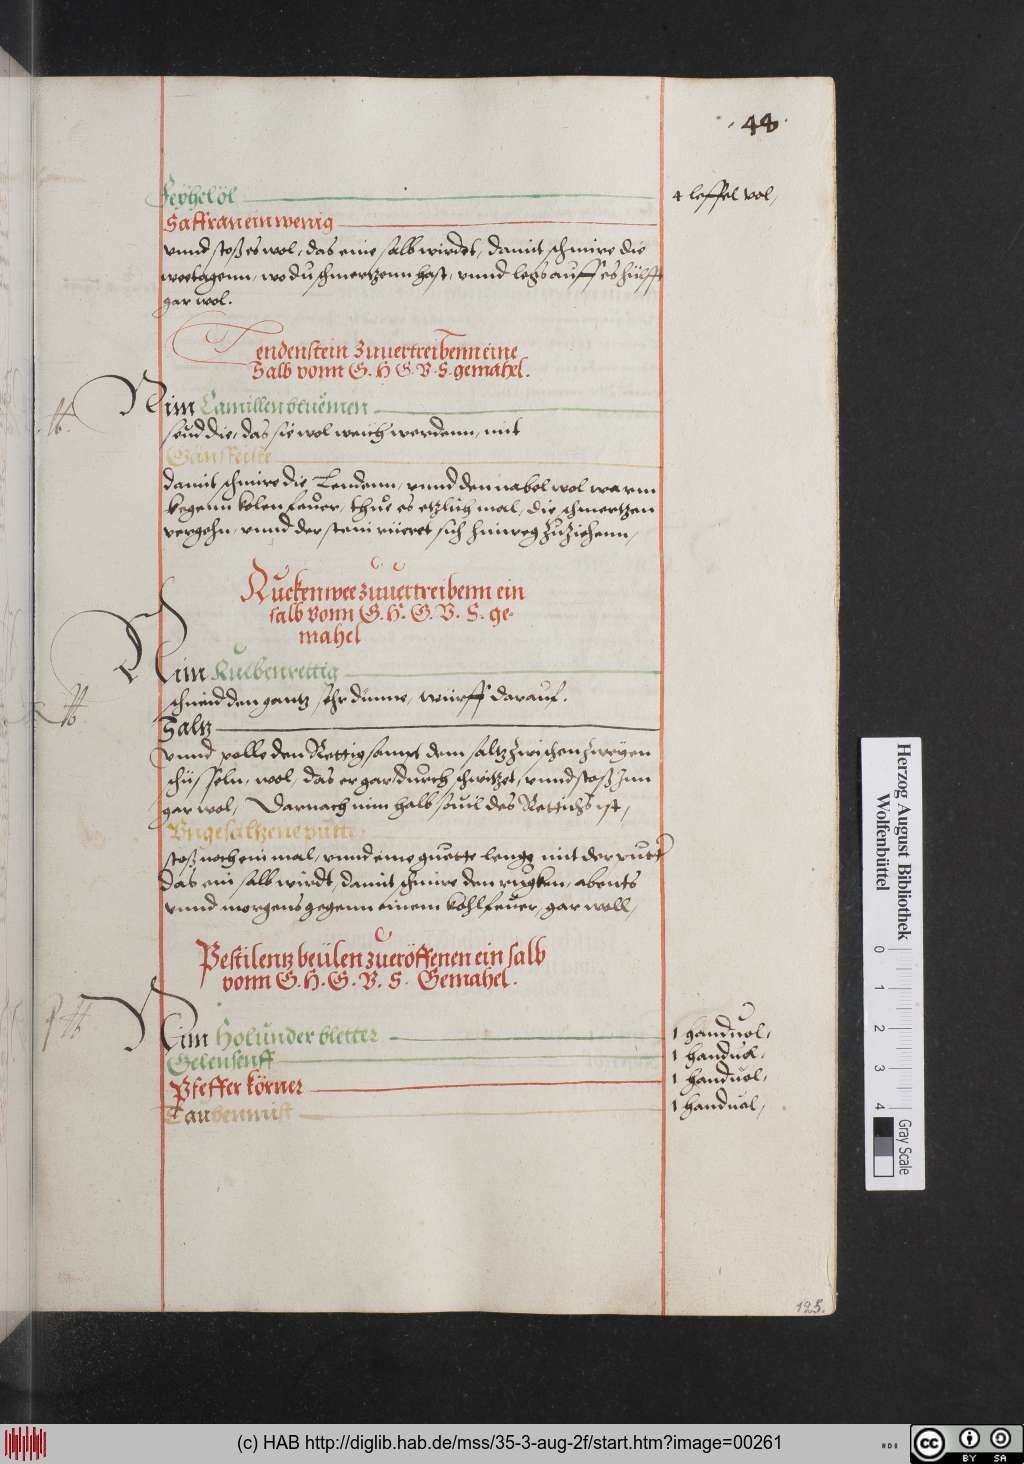 44
Feÿhel öl 4 leffel vol,
Saffran ein wenig
vnnd stoß es wol, das eine salb wirdet, damit schmire die
weetagenn, wo du schmertzenn hast, vnnd legs auff es hülfft
gar wol.
Lendenstein zuuertreibenn eine
Salb vonn G. H G. V. S. gemahel.
Nim Camillen bluemen
seud die, das sie wol weich werdenn, mit
Gänsfeiste
damit schmire die Lendenn, vnnd den nabel wol warm
kegenn kolen feuer, thue es etzlich mal, die schmertzen
vergehn, vnnd der stein rüeret sich hinweg zuziehenn,
Ruckenwee zuuertreibenn ein
salb vonn G. H. G. V. S. ge-
mahel
Nim Kuebenrettig
schneid den gantz sehr dünne, würff darauf.
Saltz
vnnd den Rettig sampt dem saltz zwischen zweÿen
schüsseln, wol, das er gar durch schwitzet, vnnd stoß Inn
gar wol, Darnach nim halb souil des Rettichs ist,
Vngesaltzene putter
stoß noch ein mal, vnnd eine guette lenge mit der putter
das ein salb wirdt, damit schmire den rugken, abents
vnnd morgens gegenn einem kohlfeuer, gar woll,
Pestilentz beülen zueröffenen ein salb
vonn G. H. G. V. S. Gemahel.
Nim Holunder bletter 1 handuol,
Gelensenff 1 handuol,
Pfeffer körner 1 handuol,
Taubenmist 1 handuol,
125.
Herzog August Bibliothek
Wolfenbüttel
0 1 2 3 4
Gray Scale
(c) HAB http://diglib.hab.de/mss/35-3-aug-2f/start.htm?image=00261
cc BY SA